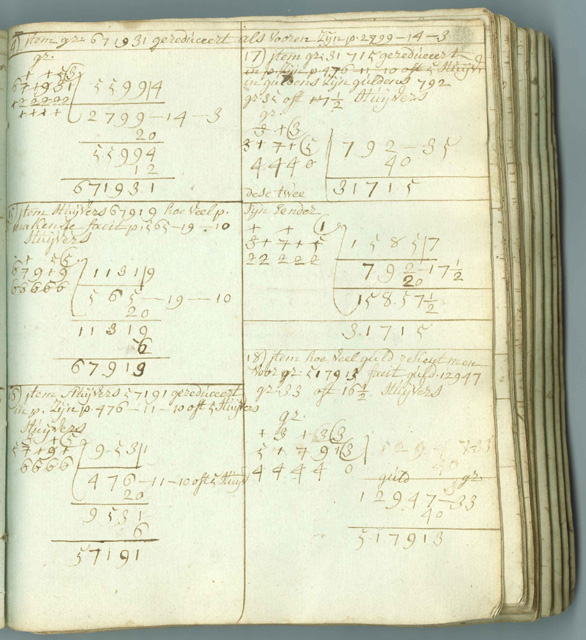 item gr: 671931 gereduceert als vooren Zijn p. 2799-14-3
gr.
55994
2799-14-3
20
55994
12
671931
item Stuijvers 67919 hoe veel p.
facit p: 565-19-10
Stuijvers
67919
66666
11319
565-19-10
20
11319
6
67919
item Stuijvers 57191 gereduceert
in p. Zijn p 476-11-10 oft 5 Stuijvers
Stuijvers
57191
6666
9531
476-11-10 oft 5 Stuijv
20
9531
6
57191
17) item gr: 31715 gereduceert
Zijn guldens 792
gr: 35 oft 17 1/2 Stuijvers
gr.
31715
4440
792-35
40
31715
dese twee
Zijn eender
31715
22222
15857
792-17 1/2
20
15857 1/2
31715
18) item hoe veel guld
voor gr: 517913 facit guld: 12947
gr: 33 oft 16 1/2 Stuijvers
gr:
517913
44440
guld gr:
12947-33
40
517913